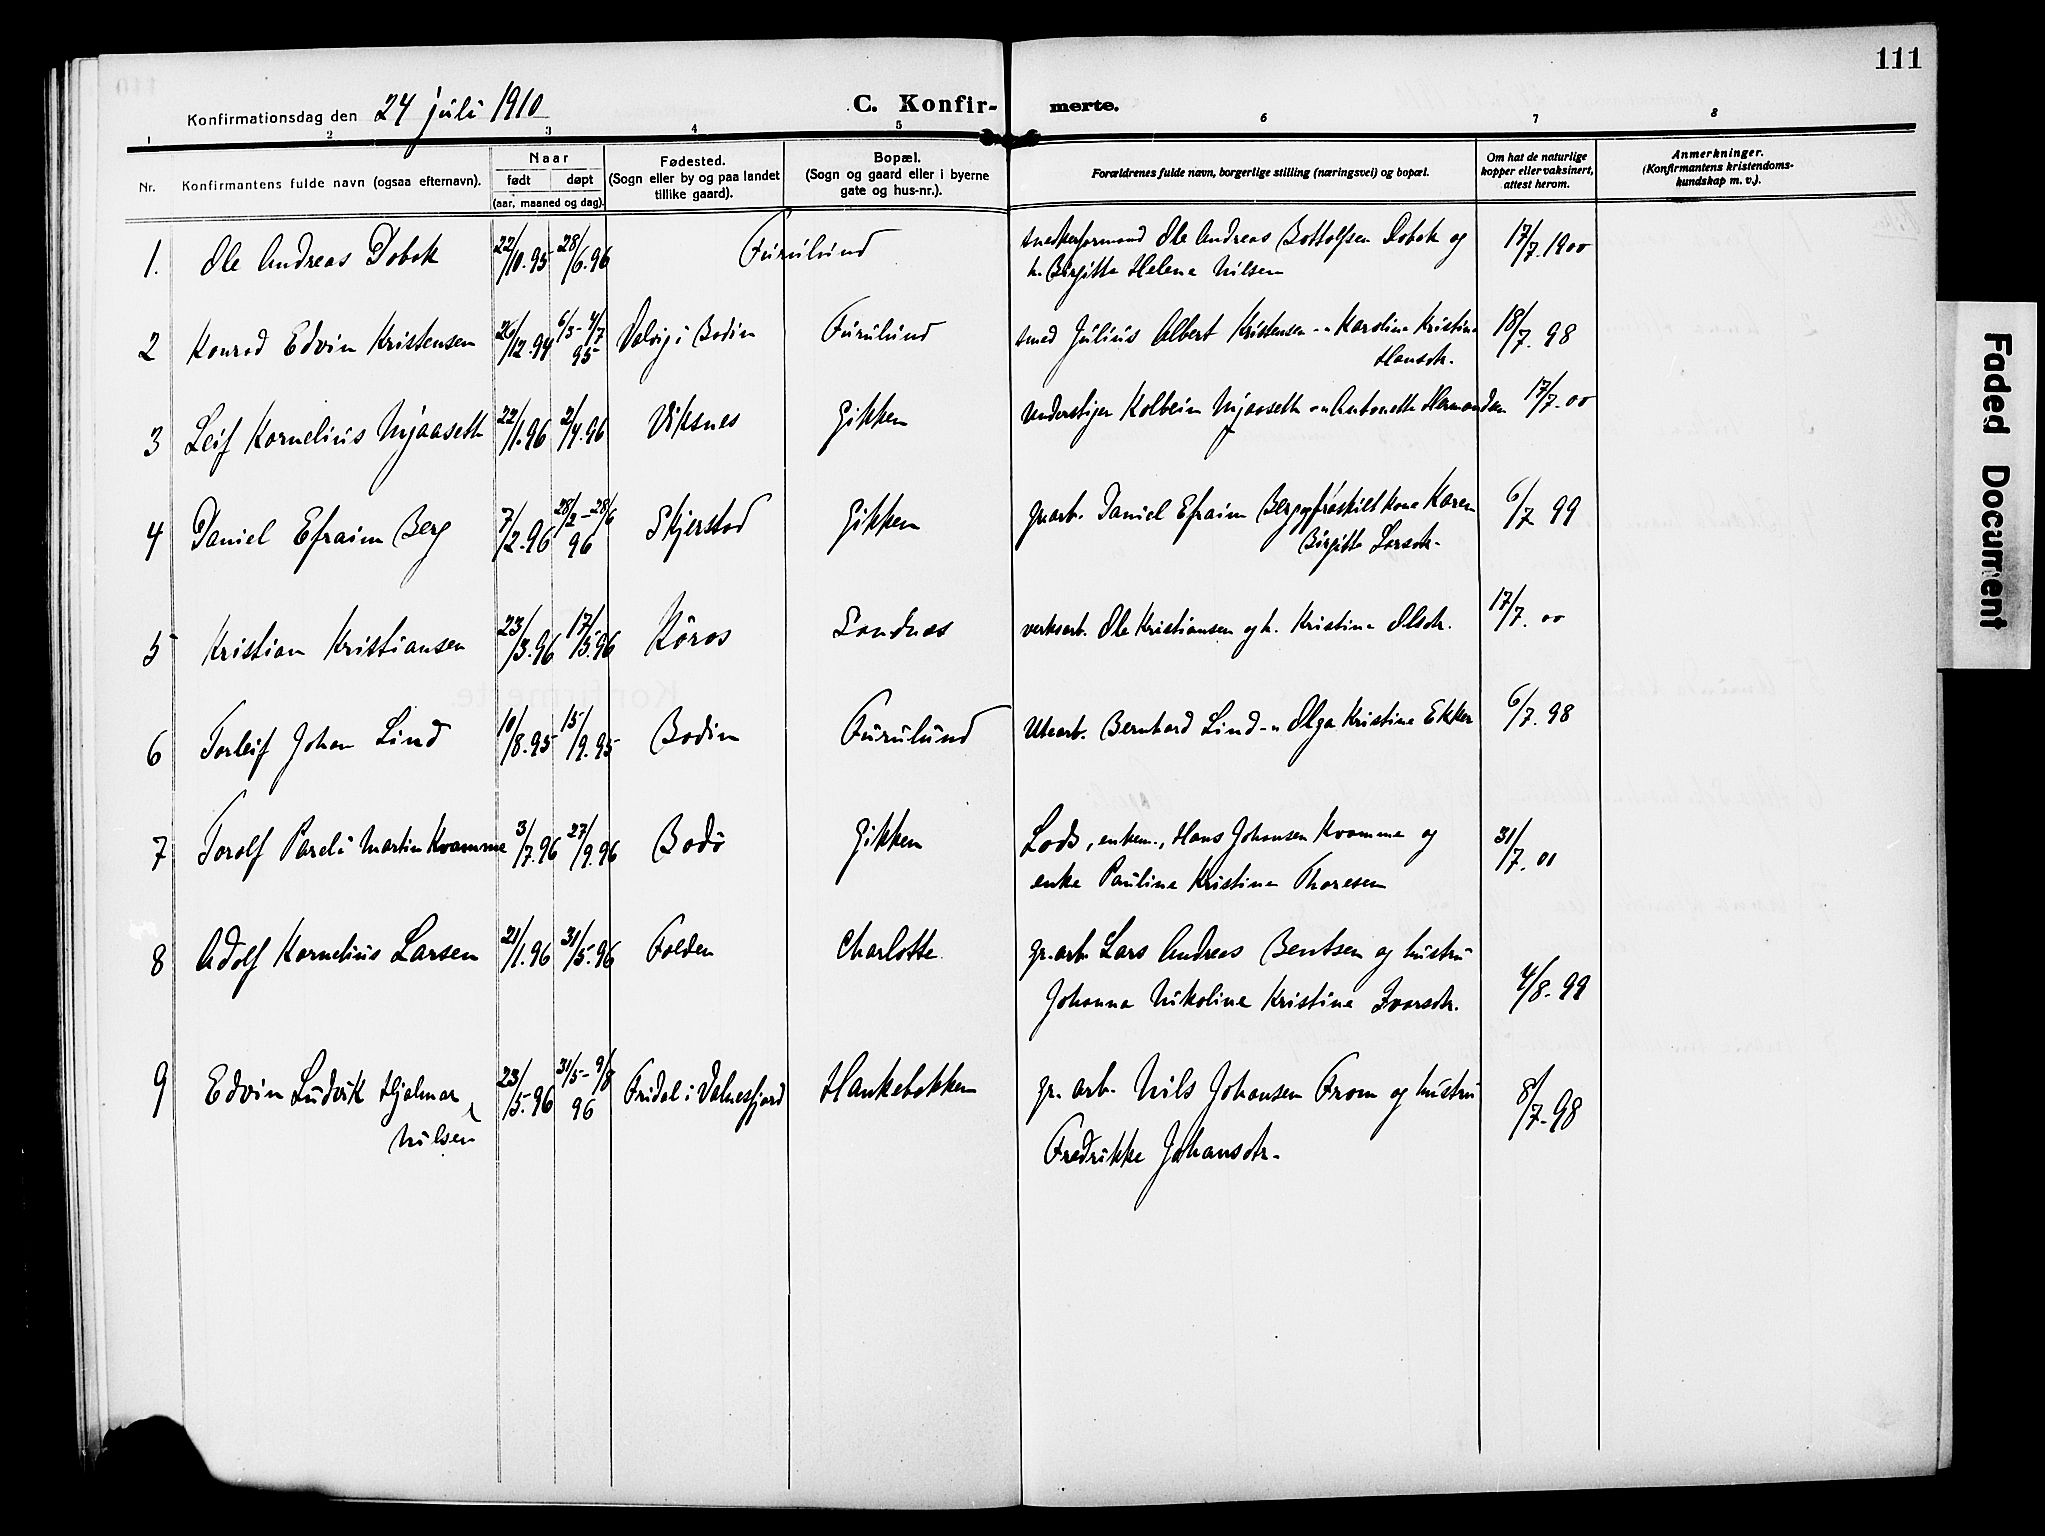 111
Konfirmationsdag den 24 juli 1910
C. Konfir- merte.
1 2 3 4 5 6 7 8
Nr.
Konfirmantens fulde navn (ogsaa efternavn).
Naar
født
døpt
(aar, maaned og dag).
Fødested.
(Sogn eller by og paa landet
tillike gaard).
Bopæl.
(Sogn og gaard eller i byerne
gate og hus-nr.).
Forældrenes fulde navn, borgerlige stilling (næringsvei) og bopæl.
Om hat de naturlige
kopper eller vaksinert,
attest herom.
Anmerkninger.
(Konfirmantens kristendoms-
kundskap m. v.).
1. Ole Andreas Dobok 22/10.95 28/6.96 Furulund snekkerformand Ole Andreas Bottolfsen Dobok og 17/7.1900
h. Birgitte Helene Nilsen
2 Konrad Edvin Kristensen 26/12.94 6/3-4/7 95 Valvig i Bodin Furulund smed Julius Albert Kristensen -"- Karoline Kristine 18/7. 98
Hansdtr.
3 Leif Kornelius Mjaaseth 22/1.96 2/4.96 Viksnes Gikken understiger Kolbein Mjaaseth -"- Antonette Hermandsen 17/7.00
4 Daniel Efraim Berg 7/2.96 28/2-28/6 96 Skjerstad Gikken gr.arb. Daniel Efraim Berg og fraskilt kone Karen 6/7 99
Birgitte Larsdtr.
5 Kristian Kristiansen 23/3.96 17/5.96 Röros Sandnes verksarb. Ole Kristiansen og h. Kristine Olsdtr. 17/7. 00
6 Torleif Johan Lind 10/8.95 15/9.95 Bodin Furulund Utearb. Bernhard Lind -"- Olga Kristine Ekker 6/7.98
7 Torolf Pareli Martin Kvamme 3/7.96 27/9.96 Bodö Gikken Lods, enkem., Hans Johansen Kvamme og 31/7. 01
enke Pauline Kristine Thoresen
8 Adolf Kornelius Larsen 21/1.96 31/5.96 Folden Charlotte gr.arb. Lars Andreas Bentsen og hustru
Johanna Nikoline Kristine Ivarsdtr. 4/8.99
9 Edvin Ludvik Hjalmar 23/5.96 31/5-9/8 96 Fridal i Valnesfjord Hankebakken gr. arb. Nils Johansen From og hustru 8/7.98
Nilsen
Fredrikke Johansdtr.
Faded Document